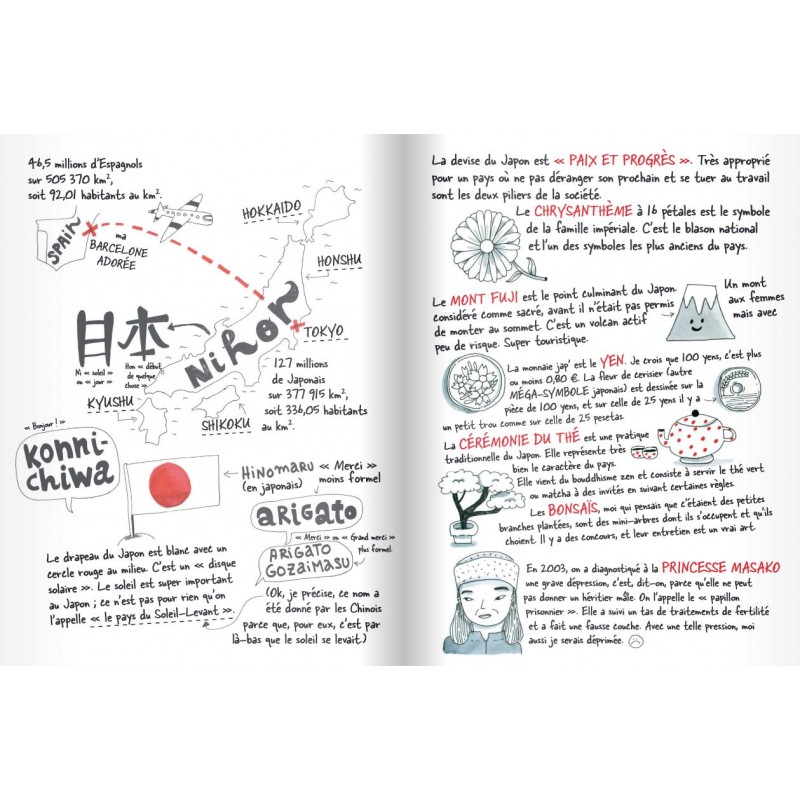 46,5 millions d'Espagnols
sur 505 370 km²,
soit 92,01 habitants au km².
SPAIN
ma
BARCELONE
ADORÉE
HOKKAIDO
HONSHU
TOKYO
日本
Nihon
Ni « soleil »
ou « jour »
Hon « début
de quelque
chose »
KYUSHU
SHIKOKU
127 millions
de Japonais
sur 377 915 km²,
soit 336,05 habitants
au km².
« Bonjour ! »
Konni-
chiwa
HINOMARU
(en japonais)
« Merci »
moins formel
ARIGATO
« Merci » ou « Grand merci »
plus formel
ARIGATO
GOZAIMASU
Le drapeau du Japon est blanc avec un
cercle rouge au milieu. C'est un « disque
solaire ». Le soleil est super important
au Japon ; ce n'est pas pour rien qu'on
l'appelle « le pays du Soleil-Levant ».
(Ok, je précise, ce nom a
été donné par les Chinois
parce que, pour eux, c'est par
là-bas que le soleil se levait.)
La devise du Japon est « PAIX ET PROGRÈS ». Très approprié
pour un pays où ne pas déranger son prochain et se tuer au travail
sont les deux piliers de la société.
Le CHRYSANTHÈME à 16 pétales est le symbole
de la famille impériale. C'est le blason national
et l'un des symboles les plus anciens du pays.
Le MONT FUJI est le point culminant du Japon.
considéré comme sacré, avant il n'était pas permis
de monter au sommet. C'est un volcan actif
peu de risque. Super touristique.
Un mont
aux femmes
mais avec
La monnaie jap' est le YEN. Je crois que 100 yens, c'est plus
ou moins 0,80 €. La fleur de cerisier (autre
MÉGA-SYMBOLE japonais) est dessinée sur la
pièce de 100 yens, et sur celle de 25 yens il y a
un petit trou comme sur celle de 25 pesetas.
La CÉRÉMONIE DU THÉ est une pratique
traditionnelle du Japon. Elle représente très
bien le caractère du pays.
Elle vient du bouddhisme zen et consiste à servir le thé vert
ou matcha à des invités en suivant certaines règles.
Les BONSAÏS, moi qui pensais que c'étaient des petites
branches plantées, sont des mini-arbres dont ils s'occupent et qu'ils
choient. Il y a des concours, et leur entretien est un vrai art
En 2003, on a diagnostiqué à la PRINCESSE MASAKO
une grave dépression, c'est, dit-on, parce qu'elle ne peut
pas donner un héritier mâle. On l'appelle le « papillon
prisonnier ». Elle a suivi un tas de traitements de fertilité
et a fait une fausse couche. Avec une telle pression, moi
aussi je serais déprimée.